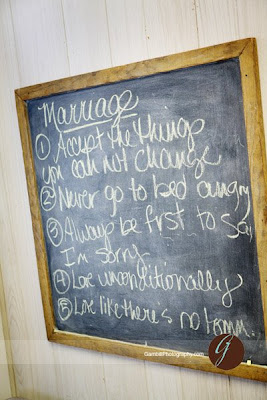 Marriage
① Accept the things
you can not change
② Never go to bed angry
③ Always be first to say
I'm sorry
④ Love unconditionally
⑤ Love like there's no tomm.
G
GambitPhotography.com